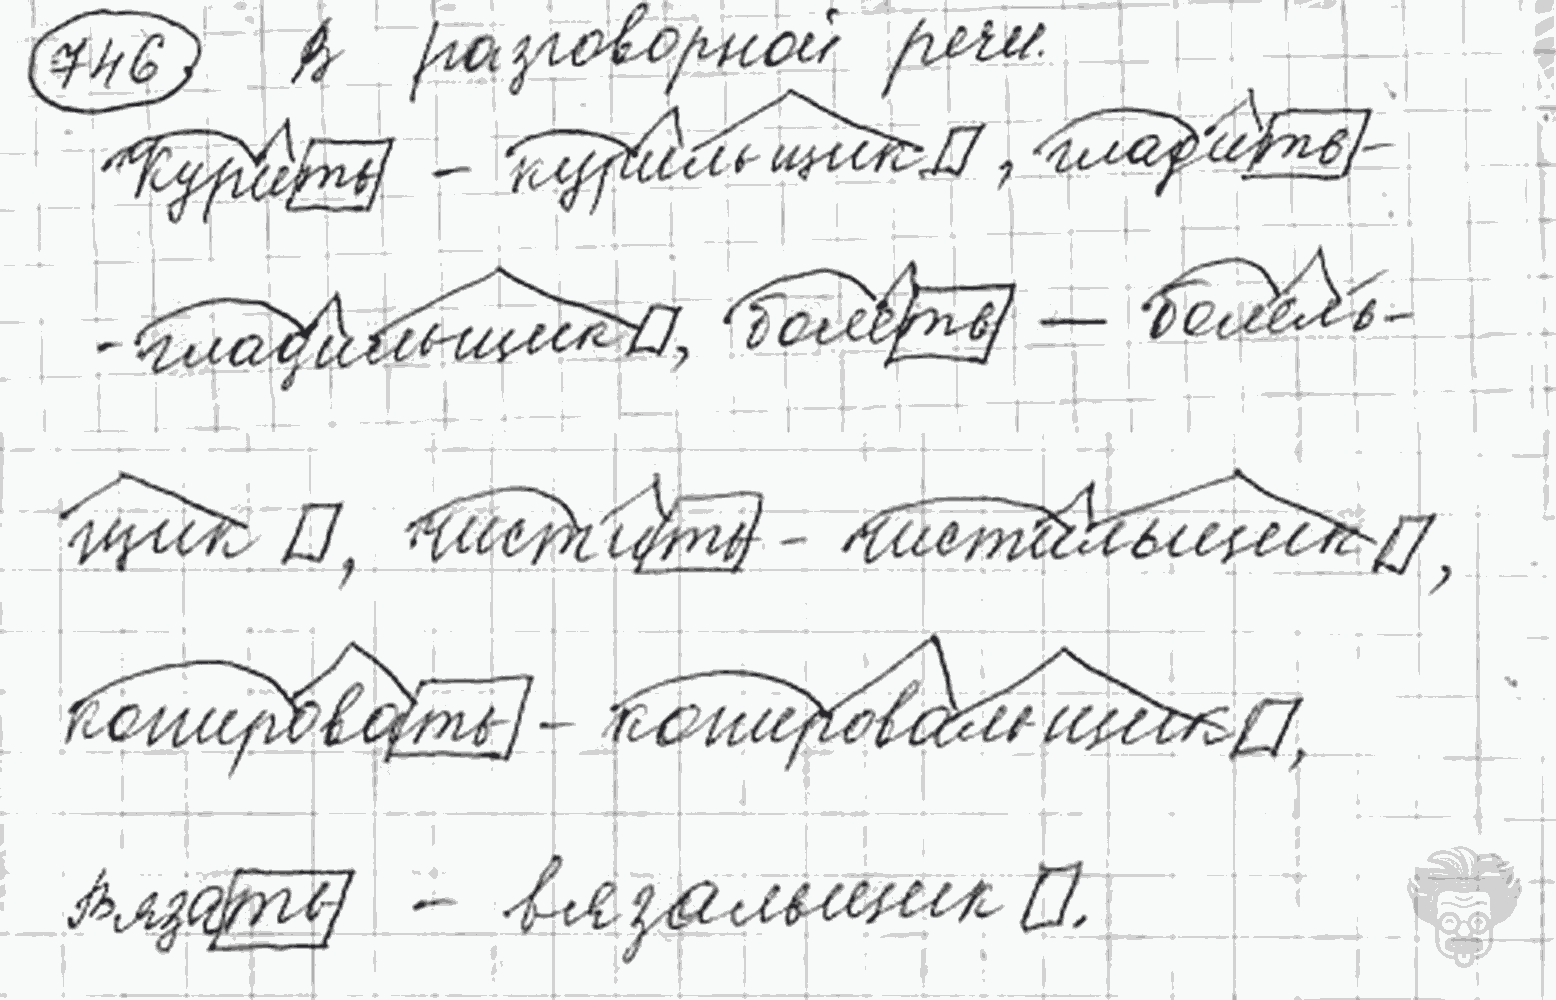 746 В разговорной речи.
Курить - курильщик, гладить-
-гладильщик, болеть — болель-
щик, чистить - чистильщик,
копировать - копировальщик,
вязать - вязальщик.